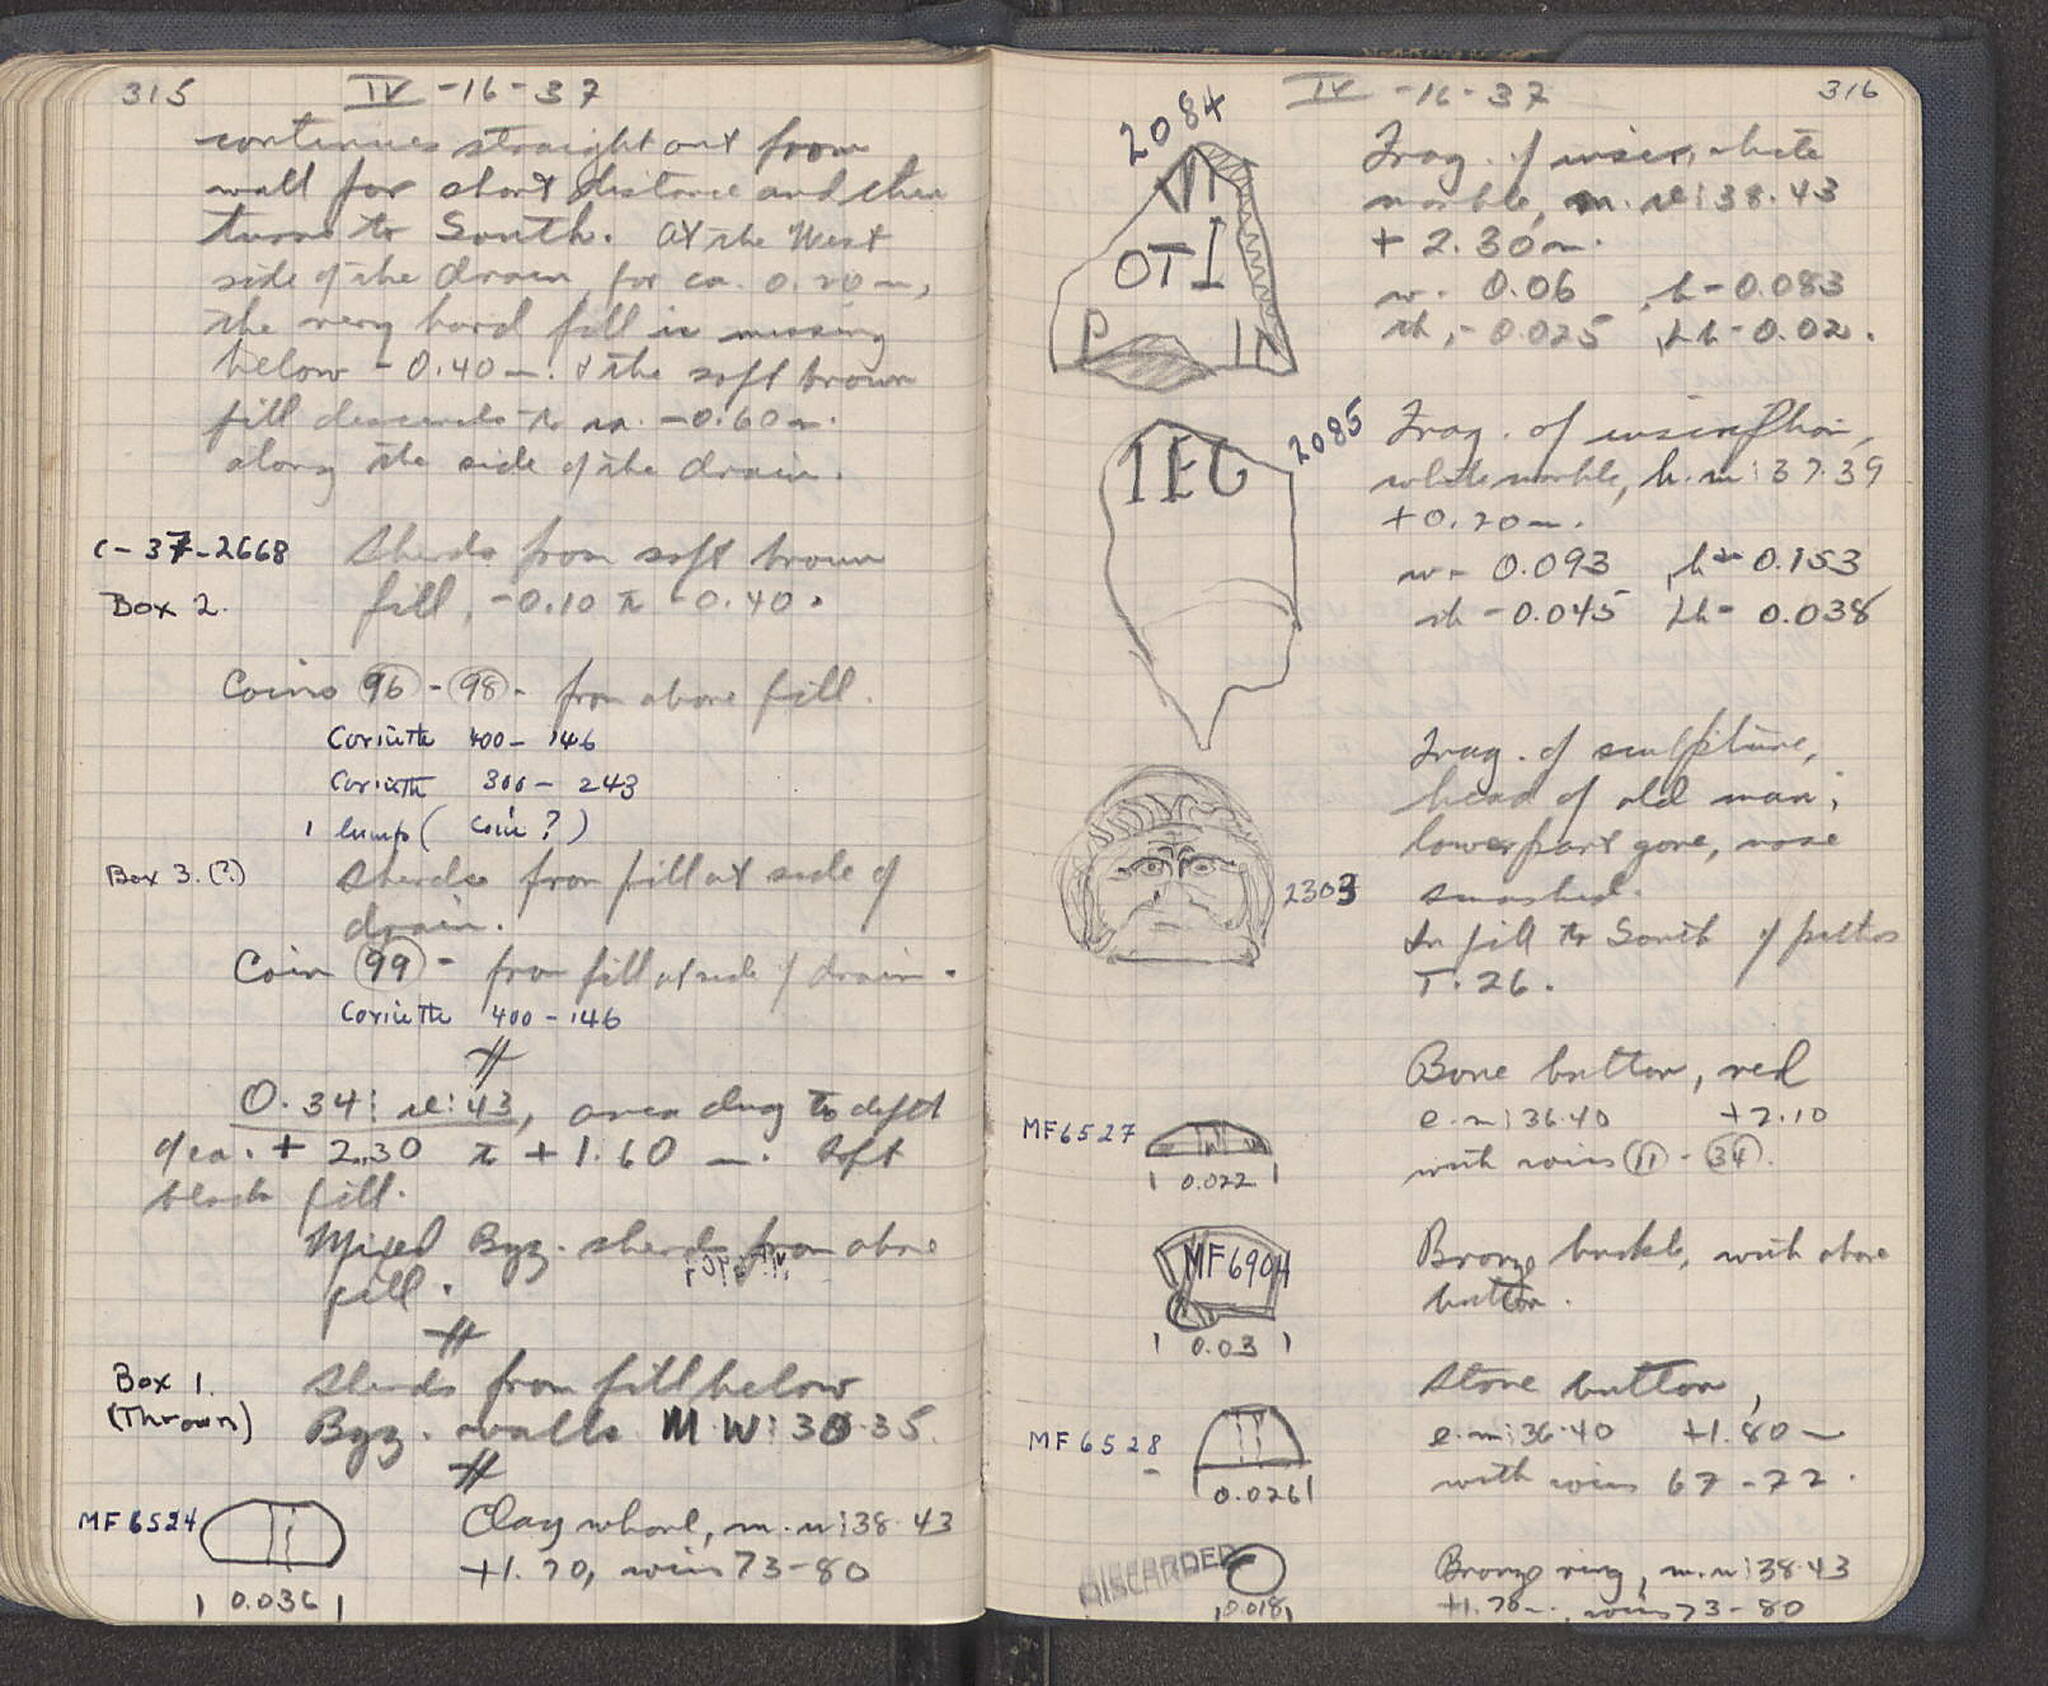 315
IV -16-37
continues straight out from
wall for short distance and then
turns to South. At the West
side of the drain, for ca. 0.20 m,
the very hard fill is missing
below -0.40 m. & the soft brown
fill descends to ca. -0.60 m.
along the side of the drain.
C-37-2668 Sherds from soft brown
Box 2. fill, -0.10 to -0.40.
Coins 96 - 98 - from above fill.
Corinth 400-146
Corinth 300-243
1 lump (coin?)
Box 3.(?) Sherds from fill at side of
drain.
Coin 99 - from fill at side of drain.
Corinth 400-146
#
O. 34: :43, area dug to depth
of ca. + 2.30 to +1.60 m. Soft
black fill.
Mixed Byz. sherds from above
fill.
#
Box 1. Sherds from fill below
(Thrown) Byz. walls M.W:30.35.
#
MF 6524 Clay whorl, m. :38.43
+1.70, coins 73-80
0.036
IV -16-37
316
2084
OTI
P
Frag. of inscr, white
marble, m. :38.43
+ 2.30 m.
w- 0.06 , h-0.083
th,-0.025 , Lh-0.02.
2085
IEG
Frag. of inscription,
white marble, :37.39
+0.20 m.
w- 0.093 , h- 0.153
th -0.045 Lh- 0.038
Frag. of sculpture,
head of old man;
lower part gone, nose
2303
smashed.
In fill to South of pithos
T.26.
Bone button, red
MF6527
e. :36.40 +2.10
with coins 11 - 34.
0.022
MF6904
Bronze buckle, with above
button.
0.03
Stone button,
MF 6528
e. :36.40 +1.80 m
with coins 67-72.
0.026
DISCARDED
Bronze ring, m. :38.43
+1.70 m., coins 73-80
0.018